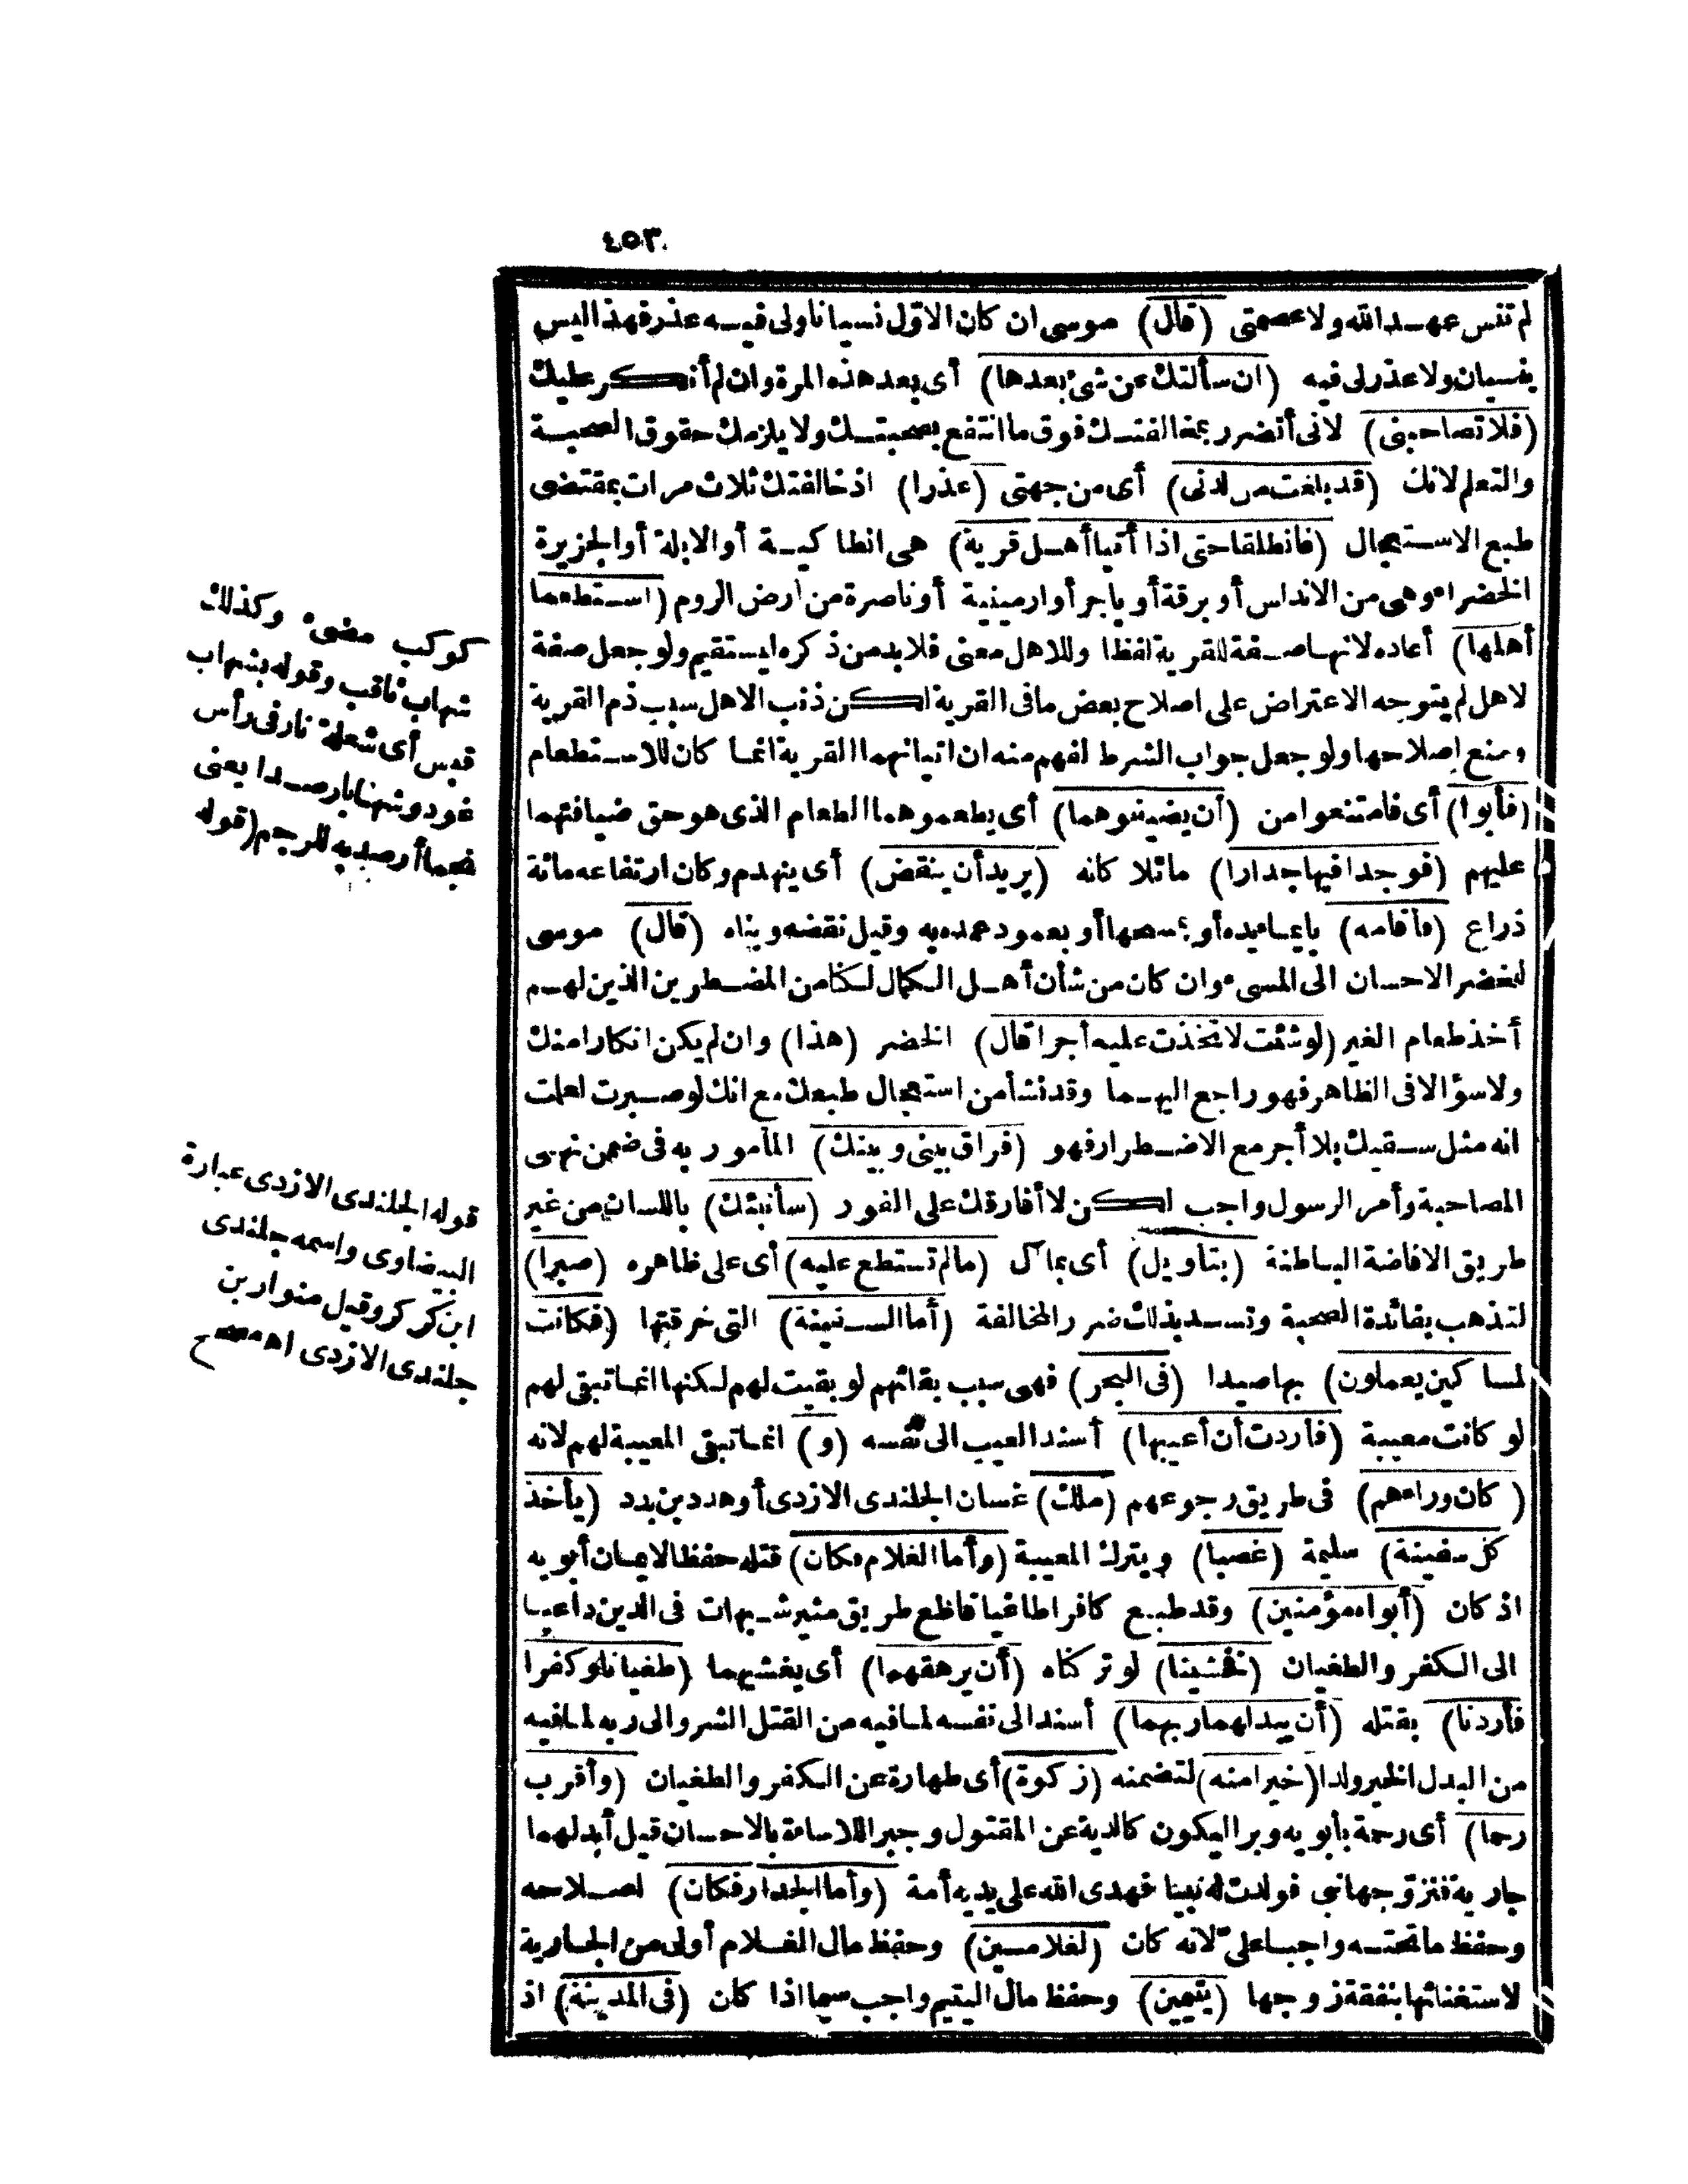 ٤٥٣
لم تنس عهد الله ولا عصمتى (قال) موسى ان كان الاوّل نسيانا ولى فيه عذر فهذا ليس
بنسيان ولا عذر لى فيه (ان سألتك عن شئ بعدها) أى بعد هذه المرة وان لم أنكر عليك
(فلا تصاحبنى) لانى أتضرر بمخالفتك فوق ما انتفع بصحبتك ولا يلزمك حقوق الصحبة
والتعلم لانك (قد بلغت من لدنى) أى من جهتى (عذرا) اذ خالفتك ثلاث مرات بمقتضى
طبع الاستعجال (فانطلقا حتى اذا أتيا أهل قرية) هى انطا كية أو الابلة أو الجزيرة
الخضراء وهى من الاندلس أو برقة أو باجر أو ارمينية أو ناصرة من ارض الروم (استطعما
أهلها) أعاده لانها صفة للقرية لفظا وللاهل معنى فلابد من ذكره ليستقيم ولو جعل صفة
لاهل لم يتوجه الاعتراض على اصلاح بعض ما فى القرية لكن ذنب الاهل سبب ذم القرية
ومنع اصلاحها ولو جعل جواب الشرط لفهم منه ان اتيانهما القرية انما كان للاستطعام
(فأبوا) أى فامتنعوا من (أن يضيفوهما) أى يطعموهما الطعام الذى هو حق ضيافتهما
عليهم (فوجدا فيها جدارا) مائلا كانه (يريد أن ينقض) أى ينهدم وكان ارتفاعه مائة
ذراع (فأقامه) بايماء يده أو بمسحها أو بعمود عمده به وقيل نقضه وبناه (قال) موسى
لخضر الاحسان الى المسىء وان كان من شأن أهل الكمال لكنا من المضطرين الذين لهم
أخذ طعام الغير (لو شئت لاتخذت عليه أجرا قال) الخضر (هذا) وان لم يكن انكارا منك
ولا سؤالا فى الظاهر فهو راجع اليهما وقد نشأ من استعجال طبعك مع انك لو صبرت لعلمت
انه مثل سقيك بلا أجر مع الاضطرار فهو (فراق بينى وبينك) المأمور به فى ضمن نهى
المصاحبة وأمر الرسول واجب لكن لا أفارقك على الفور (سأنبئك) باللسان من غير
طريق الافاضة الباطنة (بتأويل) أى بمآل (ما لم تستطع عليه) أى على ظاهره (صبرا)
لتذهب بفائدة الصحبة وتسد بذلك ضرر المخالفة (أما السفينة) التى خرقتها (فكانت
لمساكين يعملون) بها صيدا (فى البحر) فهى سبب بقائهم لو بقيت لهم لكنها انما تبقى لهم
لو كانت معيبة (فأردت أن أعيبها) أسند العيب الى نفسه (و) انما تبقى المعيبة لهم لانه
(كان وراءهم) فى طريق رجوعهم (ملك) غسان الجلندى الازدى أو هدد بن بدد (يأخذ
كل سفينة) سليمة (غصبا) ويترك المعيبة (وأما الغلام فكان) قتله حفظا لايمان أبويه
اذ كان (أبواه مؤمنين) وقد طبع كافرا طاغيا قاطع طريق مثير شبهات فى الدين داعيا
الى الكفر والطغيان (فخشينا) لو تركناه (أن يرهقهما) أى يغشيهما (طغيانا وكفرا
فأردنا) بقتله (أن يبدلهما ربهما) أسند الى نفسه لما فيه من القتل الشر والى ربه لما فيه
من البدل الخير ولدا (خيرا منه) لتضمنه (زكوة) أى طهارة عن الكفر والطغيان (وأقرب
رحما) أى رحمة بأبويه وبرا ليكون كالدية عن المقتول وجبرا للاساءة بالاحسان قيل أبدلهما
جارية فتزوّجها نبى فولدت له نبيا فهدى الله على يديه أمة (وأما الجدار فكان) اصلاحه
وحفظ ما تحته واجبا علىّ لانه كان (لغلامين) وحفظ مال الغلام أولى من الجارية
لاستغنائها بنفقة زوجها (يتيمين) وحفظ مال اليتيم واجب سيما اذا كان (فى المدينة) اذ
كوكب مضىء وكذلك
شهاب ثاقب وقوله بشهاب
قبس أى شعلة نار فى رأس
عود وشهابا رصدا يعنى
نجما أرصد به للرجم (قوله
قوله الجلندى الازدى عبارة
البيضاوى واسمه جلندى
ابن كركر وقيل منوار بن
جلندى الازدى اه مصحح